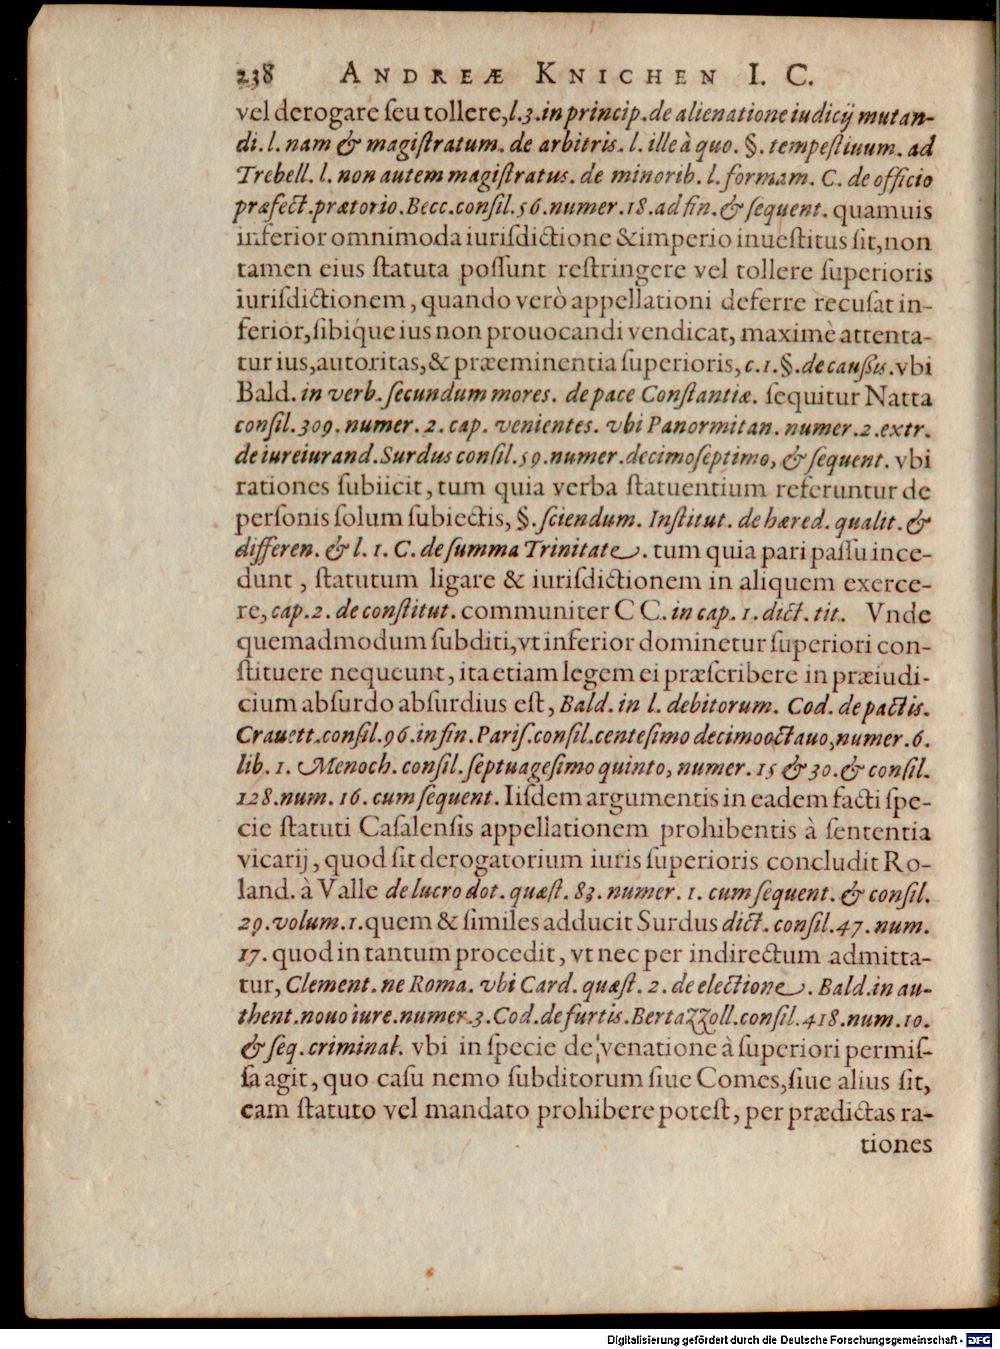 238 ANDREÆ KNICHEN I. C.
vel derogare ſeu tollere, l. 3. in princip. de alienatione iudicij mutan-
di. l. nam & magiſtratum. de arbitris. l. ille à quo. §. tempeſtiuum. ad
Trebell. l. non autem magiſtratus. de minorib. l. formam. C. de officio
præfect. prætorio. Becc. conſil. 56. numer. 18. ad fin. & ſequent. quamuis
inferior omnimoda iuriſdictione & imperio inueſtitus ſit, non
tamen eius ſtatuta poſſunt reſtringere vel tollere ſuperioris
iuriſdictionem, quando verò appellationi deferre recuſat in-
ferior, ſibíque ius non prouocandi vendicat, maximè attenta-
tur ius, autoritas, & præeminentia ſuperioris, c. 1. §. de cauſsis. vbi
Bald. in verb. ſecundum mores. de pace Conſtantiæ. ſequitur Natta
conſil. 309. numer. 2. cap. venientes. vbi Panormitan. numer. 2. extr.
de iureiurand. Surdus conſil. 59. numer. decimoſeptimo, & ſequent. vbi
rationes ſubiicit, tum quia verba ſtatuentium referuntur de
perſonis ſolum ſubiectis, §. ſciendum. Inſtitut. de hæred. qualit. &
differen. & l. 1. C. de ſumma Trinitate. tum quia pari paſſu ince-
dunt, ſtatutum ligare & iuriſdictionem in aliquem exerce-
re, cap. 2. de conſtitut. communiter C C. in cap. 1. dict. tit. Vnde
quemadmodum ſubditi, vt inferior dominetur ſuperiori con-
ſtituere nequeunt, ita etiam legem ei præſcribere in præiudi-
cium abſurdo abſurdius eſt, Bald. in l. debitorum. Cod. de pactis.
Crauett. conſil. 96. in fin. Pariſ. conſil. centeſimo decimooctauo, numer. 6.
lib. 1. Menoch. conſil. ſeptuageſimo quinto, numer. 15 & 30. & conſil.
128. num. 16. cum ſequent. Iiſdem argumentis in eadem facti ſpe-
cie ſtatuti Caſalenſis appellationem prohibentis à ſententia
vicarij, quod ſit derogatorium iuris ſuperioris concludit Ro-
land. à Valle de lucro dot. quæſt. 83. numer. 1. cum ſequent. & conſil.
29. volum. 1. quem & ſimiles adducit Surdus dict. conſil. 47. num.
17. quod in tantum procedit, vt nec per indirectum admitta-
tur, Clement. ne Roma. vbi Card. quæſt. 2. de electione. Bald. in au-
thent. nouo iure. numer. 3. Cod. de furtis. Bertazzoll. conſil. 418. num. 10.
& ſeq. criminal. vbi in ſpecie de venatione à ſuperiori permiſ-
ſa agit, quo caſu nemo ſubditorum ſiue Comes, ſiue alius ſit,
eam ſtatuto vel mandato prohibere poteſt, per prædictas ra-
tiones
Digitalisierung gefördert durch die Deutsche Forschungsgemeinschaft - DFG